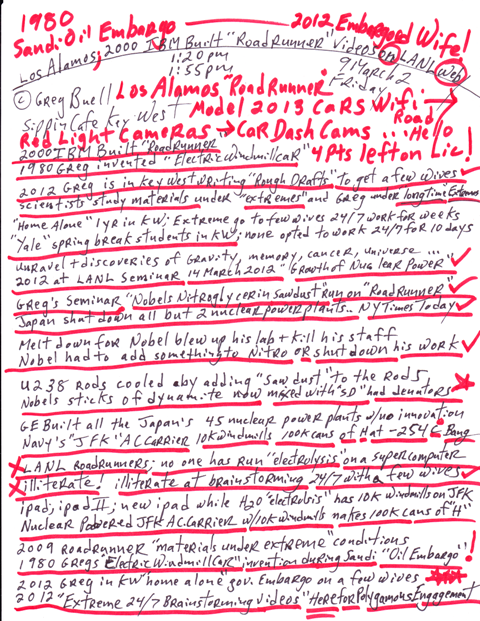 1980
Sandi-Oil Embargo — 2012 Embargoed Wife!
Los Alamos, 2000 IBM Built "RoadRunner" Videos on LANL Web
1:20pm
1:55pm
9 March 2
Friday
© Greg Buell
Los Alamos "RoadRunner"
Sippin Cafe Key West
Model 2013 CaRS Wifi →
Road
Red Light Cameras → CaR Dash Cams ... Hello
2000 IBM Built "RoadRunner
4 Pts left on Lic!
1980 Greg invented "Electric Windmill car"
2012 Greg is in Key West writing "Rough Drafts" to get a few wives
Scientists study materials under "extremes" and Greg under longtime Extremes
"Home Alone" 1 yr in KW; Extreme go to few wives 24/7 work for weeks
"Yale" spring break students in KW; none opted to work 24/7 for 10 days
unravel + discoveries of Gravity, memory, cancer, universe ...
2012 at LANL Seminar 14 March 2012 "Growth of Nuclear Power"
Greg's Seminar "Nobels Nitroglycerin sawdust" run on "RoadRunner"
Japan shut down all but 2 nuclear power plants.. NY Times Today
Melt down for Nobel blew up his lab + kill his staff
Nobel had to add something to Nitro OR shut down his work
U238 Rods cooled by adding "saw dust" to the Rods
Nobels sticks of dynamite now mixed with "SD" had denators
GE Built all the Japan's 45 nuclear power plants w/no innovation
Navy's "JFK" AC Carrier 10K windmills 100K cans of H at -254 C Bang
LANL RoadRunners; no one has run "electrolysis" on a supercomputer
illiterate! illiterate at brainstorming 24/7 with a few wives
ipad, ipad II; new ipad while H2O "electrolysis" has 10K windmills on JFK
Nuclear Powered JFK AC Carrier w/10K windmills makes 100K cans of "H"
2009 RoadRunner "materials under extreme" conditions
1980 Gregs Electric Windmill CaR" invention during Saudi "Oil Embargo"!
2012 Greg in KW "home alone" gov. Embargo on a few wives
2012 "Extreme 24/7 Brainstorming Videos" Here for Polygamous Engagement